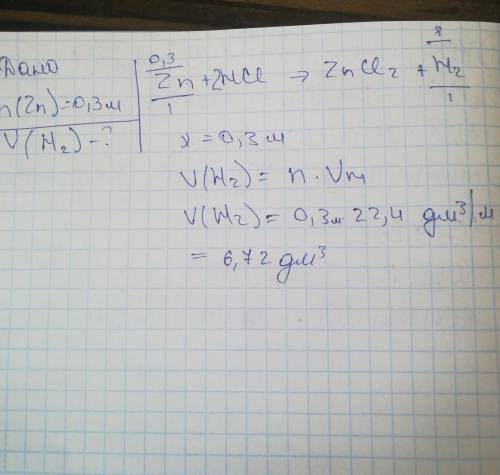 Дано
n(Zn)=0,3 м
V(H₂)-?
0,3 x
Zn + 2HCl → ZnCl₂ + H₂
1 1
x = 0,3 м
V(H₂) = n · Vm
V(H₂) = 0,3 м · 22,4 дм³/м
= 6,72 дм³